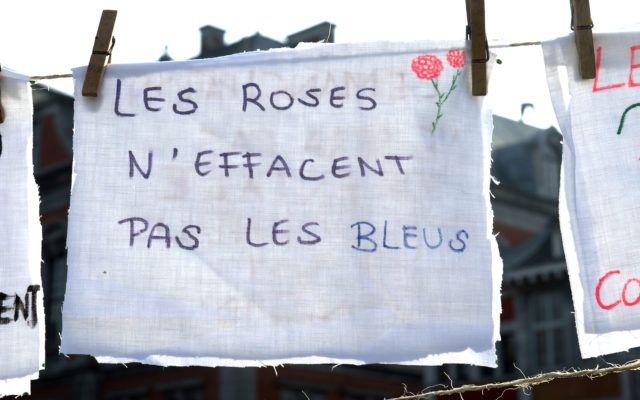 LES ROSES
N'EFFACENT
PAS LES BLEUS
ENT
LE
CO